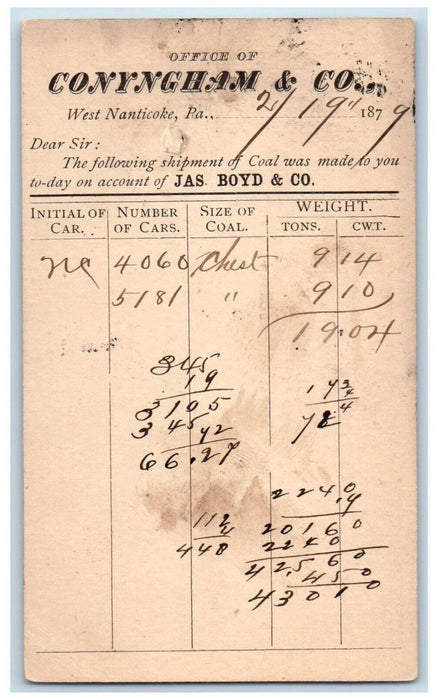 OFFICE OF
CONYNGHAM & CO.,
West Nanticoke, Pa., 2/19" 1879
Dear Sir:
The following shipment of Coal was made to you
to-day on account of JAS. BOYD & CO.
INITIAL OF CAR. NUMBER OF CARS. SIZE OF COAL. WEIGHT. TONS. CWT.
4060 Chest 9 14
5181 " 9 10
19.04
345
19
3105
345
42
66.27
17 3/4
4
2240
.9
20160
2240
42560
450
43010
112
4
448